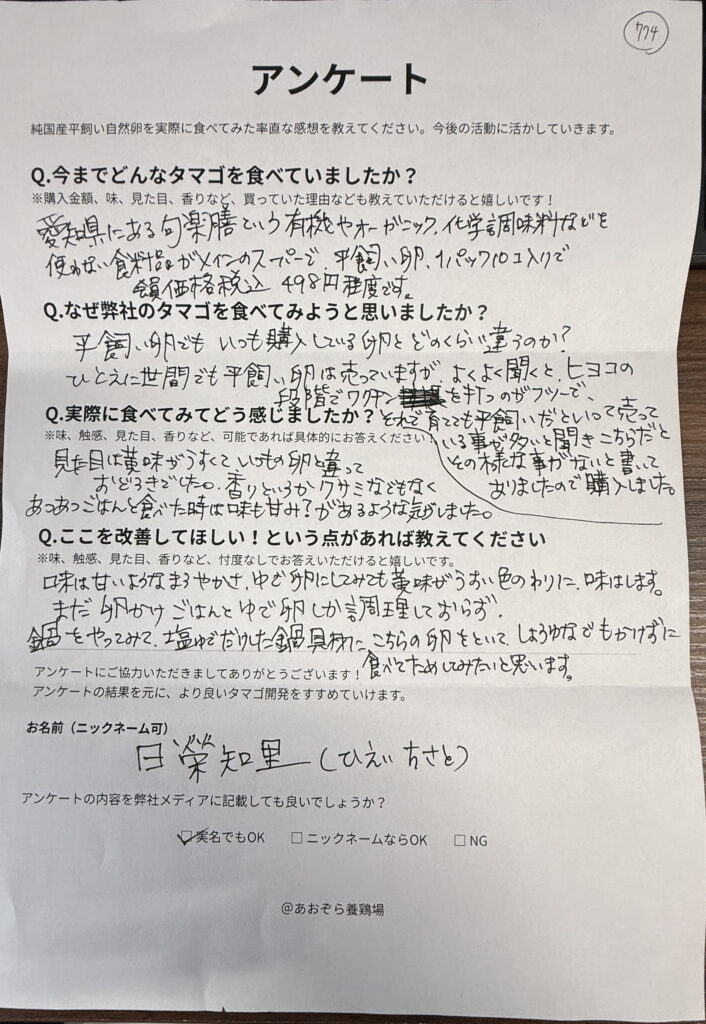 774
アンケート
純国産平飼い自然卵を実際に食べてみた率直な感想を教えてください。今後の活動に活かしていきます。
Q.今までどんなタマゴを食べていましたか？
※購入金額、味、見た目、香りなど、買っていた理由なども教えていただけると嬉しいです！
愛知県にある旬楽膳という有機やオーガニック、化学調味料などを
使わない食料品がメインのスーパーで 平飼い卵、1パック10コ入りで
会員価格税込 498円程度です。
Q.なぜ弊社のタマゴを食べてみようと思いましたか？
平飼い卵でも いつも購入している卵とどのくらい違うのか？
ひとえに世間でも平飼い卵は売っていますが、よくよく聞くと、ヒヨコの
段階でワクチンを打つのがフツーで、
それで育てても平飼いだといって売って
いる事が多いと聞き こちらだと
その様な事がないと書いて
ありましたので購入しました。
Q.実際に食べてみてどう感じましたか？
※味、触感、見た目、香りなど、可能であれば具体的にお答えください！
見た目は黄味がうすくて いつもの卵と違って
おどろきでした。香りというかクサミなどもなく
あつあつごはんと食べた時は味も甘み？があるような気がしました。
Q.ここを改善してほしい！という点があれば教えてください
※味、触感、見た目、香りなど、忖度なしでお答えいただけると嬉しいです。
口味は甘いようなまろやかさ、ゆで卵にしてみても黄味がうすい色のわりに、味はします。
まだ 卵かけごはんとゆで卵しか調理しておらず、
鍋をやってみて、塩ゆでだけした鍋具材に こちらの卵をといて、しょうゆなどもかけずに
食べてためしてみたいと思います。
アンケートにご協力いただきましてありがとうございます！
アンケートの結果を元に、より良いタマゴ開発をすすめていけます。
お名前（ニックネーム可）
日榮知里（ひえい ちさと）
アンケートの内容を弊社メディアに記載しても良いでしょうか？
☑実名でもOK □ニックネームならOK □NG
@あおぞら養鶏場